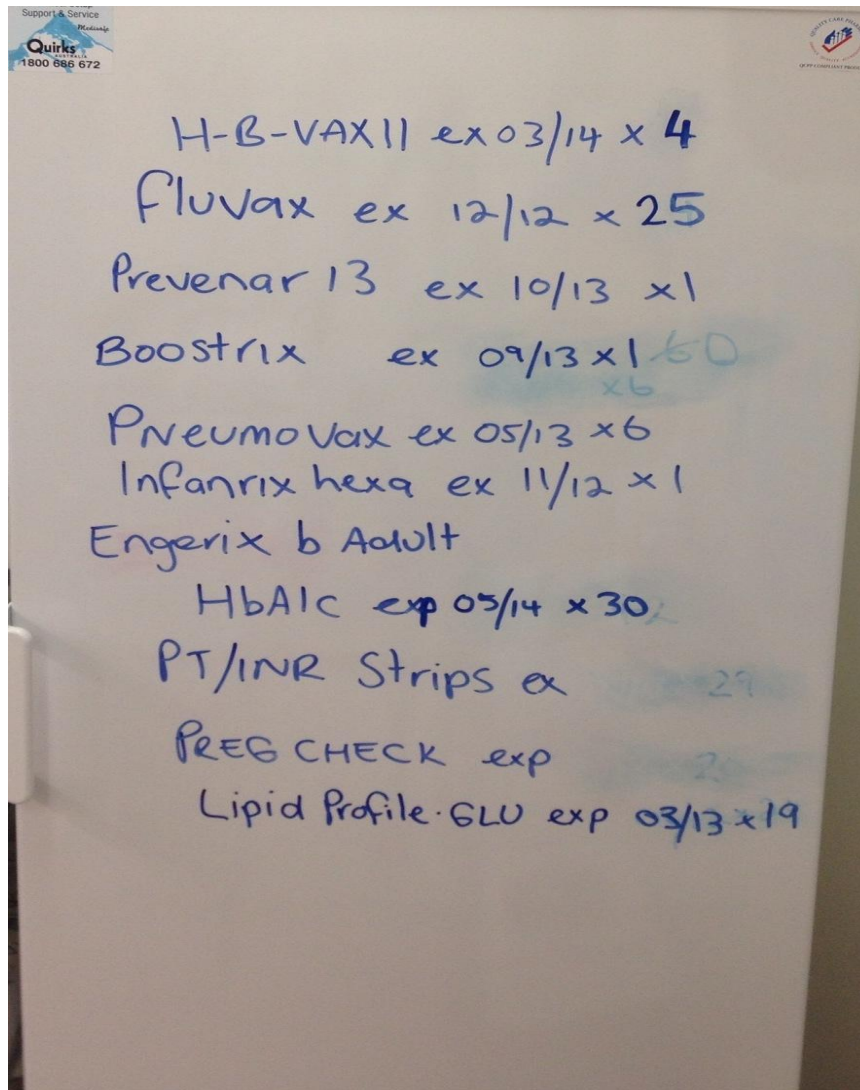 Support & Service
Quirks
AUSTRALIA
1800 686 672
H-B-VAX II ex 03/14 x 4
Fluvax ex 12/12 x 25
Prevenar 13 ex 10/13 x1
Boostrix ex 09/13 x1 60
x6
PNeumoVax ex 05/13 x6
Infanrix hexa ex 11/12 x 1
Engerix b Adult
HbA1c exp 05/14 x 30
PT/INR Strips ex 29
PREG CHECK exp
Lipid Profile·GLU exp 03/13 x19